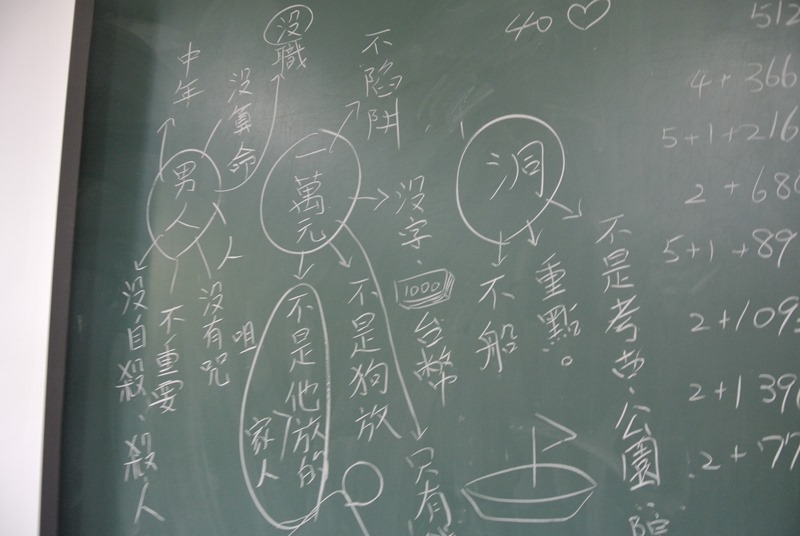 中年
没算命
没職
男人
没自殺.殺人
不重要
没有咒
咀
人
一萬元
不陷阱
没字.
1000
台幣
不是狗放
不是他放的
家人
只有
洞
不船
重點。
不是考古.公園
40
512
4+366
5+1+216
2+686
5+1+89
2+109
2+139
2+77